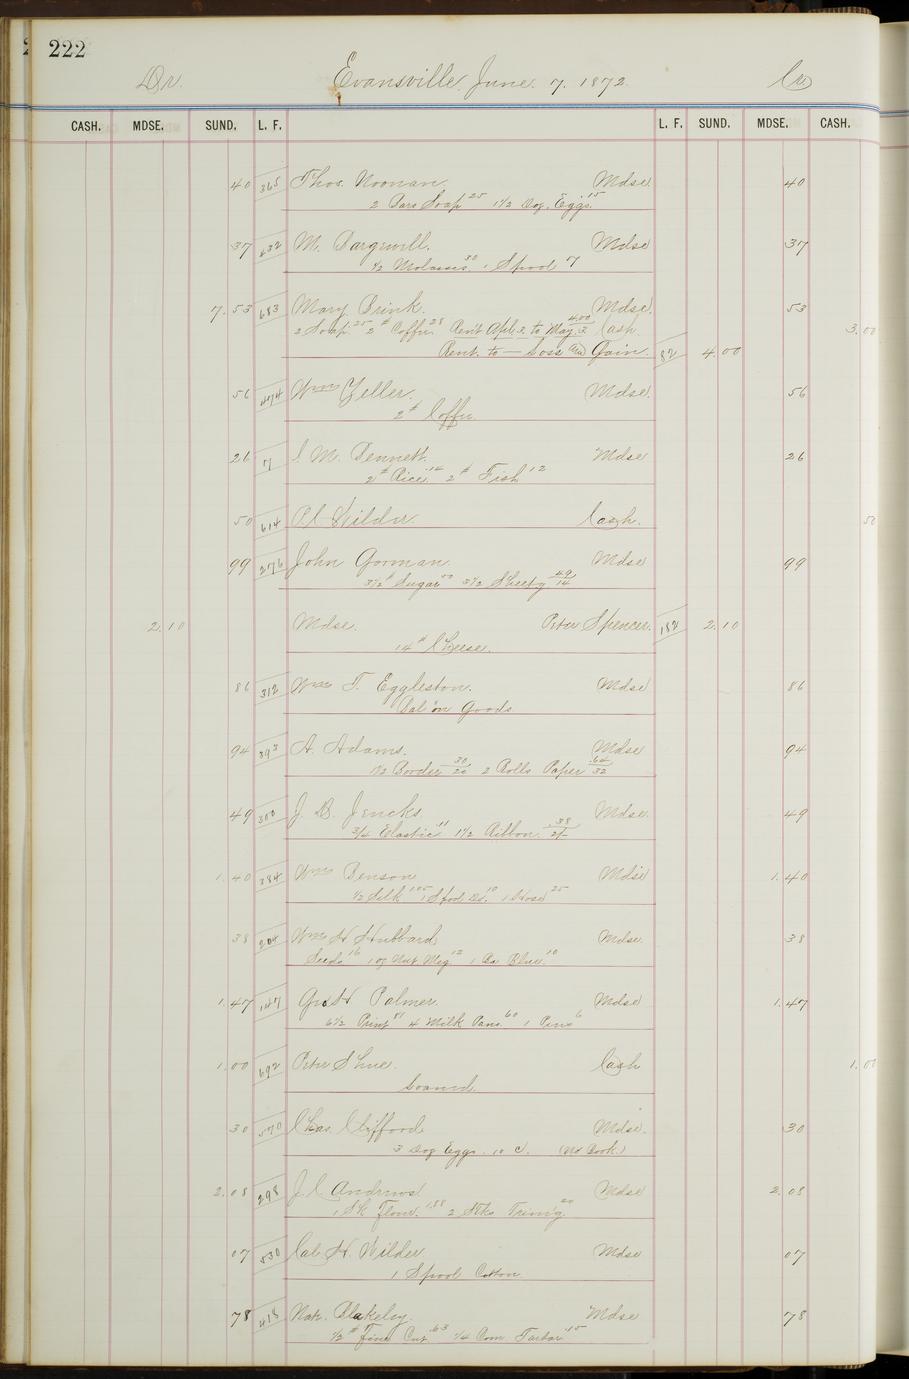 222
Dr. Evansville, June. 7. 1872 Cr
CASH. MDSE. SUND. L. F. L. F. SUND. MDSE. CASH.
40 365 Thos. Noonan. Mdse. 40
2 Bars Soap 25 1 1/2 Doz. Eggs. 15
37 632 M. Mdse 37
1/2 Molasses 30 1 Spool 7
7.53 683 Mary Brink. Mdse. 53
2 Soap 25 2 # Coffee 28 Rent Apl. 2 to May. 2 4.00 Cash 3.00
Rent. to — Loss and Gain. 82 4.00
56 474 Wm Zeller. Mdse. 56
2 # Coffee
26 7 C. M. Bennett. Mdse 26
2 # Rice. 14 2 # Fish 12
50 614 Wilder. Cash. 50
99 276 John Gorman Mdse 99
3 1/2 # Sugar 50 3 1/2 Sheetg 49/14
2.10 Mdse. Peter Spencer. 182 2.10
14 # Cheese.
86 312 Wm T. Eggleston. Mdse 86
Bal on Goods
94 393 A. Adams. Mdse 94
1 1/2 Border 30/20 2 Rolls Paper .64/32
49 300 J. B. Jencks. Mdse. 49
3/4 Elastic 11 1 1/2 Ribbon. .38/2/-
1.40 384 Wm Benson Mdse 1.40
1/2 Silk 1.05 1 Spool Do. 10 1 Hose 25
38 204 Wm H Hubbard Mdse. 38
Seeds 16 1 oz Nut Meg 12 1 Bx Blue. 10
1.47 147 Geo H. Palmer. Mdse 1.47
6 1/2 Print 81 4 Milk Pans. 60 1 Pins 6
1.00 692 Peter Shue. Cash 1.00
Loaned
30 570 Chas. Clifford Mdse. 30
3 Doz Eggs. 10 c. (No Book.)
2.08 298 J. C. Andrews. Mdse 2.08
1 Sk Flour. 1.88 2 Stks Trim'g. 20
07 530 Cal. H. Wilder Mdse 07
1 Spool Cotton
78 418 Nat. Blakeley. Mdse 78
1/2 # Fine Cut 63 1/4 Com. Tarbac 15